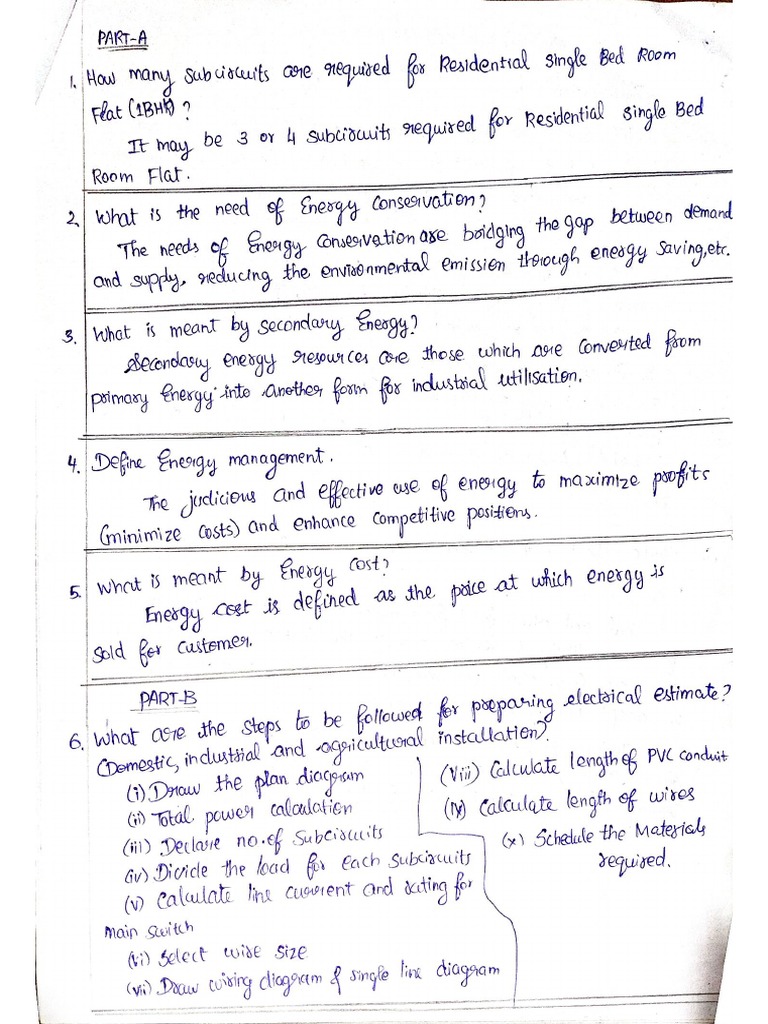 PART-A
1. How many subcircuits are required for Residential single Bed Room
Flat (1BHK)?
It may be 3 or 4 subcircuits required for Residential single Bed
Room Flat.
2. What is the need of Energy conservation?
The needs of Energy conservation are bridging the gap between demand
and supply, reducing the environmental emission through energy saving, etc.
3. What is meant by secondary Energy?
Secondary energy resources are those which are converted from
primary Energy into another form for industrial utilisation.
4. Define Energy management.
The judicious and effective use of energy to maximize profits
(minimize costs) and enhance competitive positions.
5. What is meant by Energy cost?
Energy cost is defined as the price at which energy is
sold for customer.
PART-B
6. What are the steps to be followed for preparing electrical estimate?
(Domestic, industrial and agricultural installation).
(i) Draw the plan diagram
(ii) Total power calculation
(iii) Declare no. of subcircuits
(iv) Divide the load for each subcircuits
(v) Calculate line current and rating for
main switch
(vi) Select wire size
(vii) Draw wiring diagram & single line diagram
(viii) Calculate length of PVC conduit
(ix) Calculate length of wires
(x) Schedule the Materials
required.